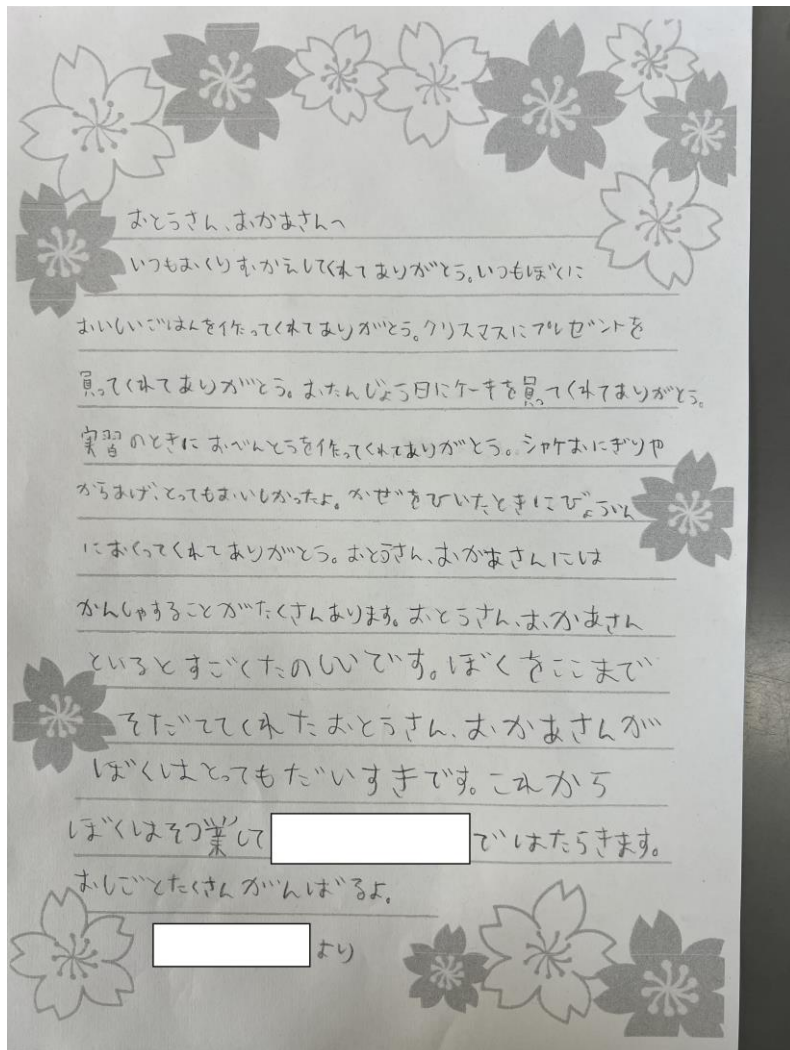 おとうさん、おかあさんへ
いつもおくりむかえしてくれてありがとう。いつもぼくに
おいしいごはんを作ってくれてありがとう。クリスマスにプレゼントを
買ってくれてありがとう。おたんじょう日にケーキを買ってくれてありがとう。
実習のときにおべんとうを作ってくれてありがとう。シャケおにぎりや
からあげ、とってもおいしかったよ。かぜをひいたときにびょういん
におくってくれてありがとう。おとうさん、おかあさんには
かんしゃすることがたくさんあります。おとうさん、おかあさん
といるとすごくたのしいです。ぼくをここまで
そだててくれたおとうさん、おかあさんが
ぼくはとってもだいすきです。これから
ぼくはそつ業して
ではたらきます。
おしごとたくさんがんばるよ。
より